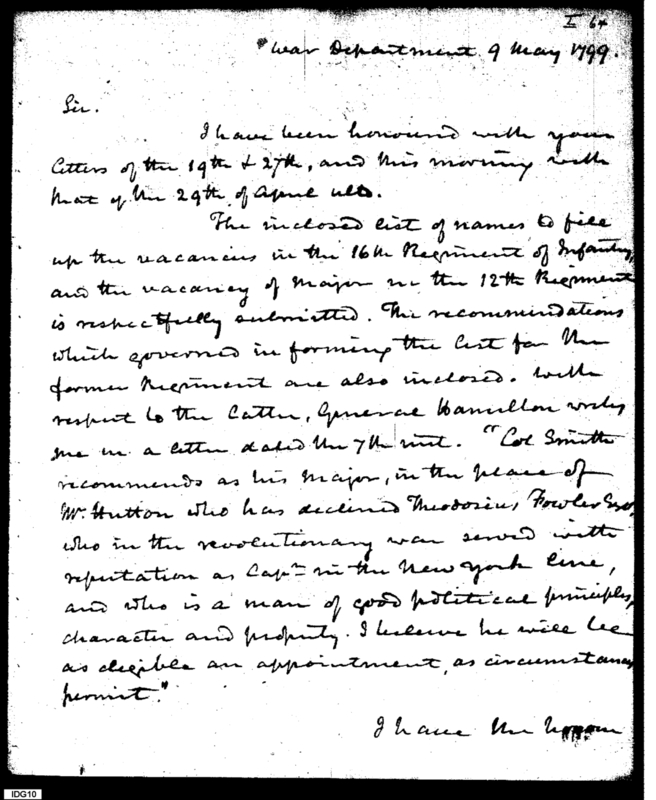 I 64
War Department 9 May 1799.
Sir.
I have been honoured with your
letters of the 19th & 27th, and this morning with
that of the 29th of April ulto.
The inclosed list of names to fill
up the vacancies in the 16th Regiment of Infantry,
and the vacancy of Major in the 12th Regiment
is respectfully submitted. The recommendations
which governed in forming the list for the
former Regiment are also inclosed. With
respect to the latter, General Hamilton writes
me in a letter dated the 7th inst. "Col Smith
recommends as his Major, in the place of
Mr. Hutton who has declined Theodosius Fowler Esqr.
who in the revolutionary war served with
reputation as Capn in the New York line,
and who is a man of good political principles,
character and property. I believe he will be
as eligible an appointment, as circumstances
permit."
I have the honour
IDG10